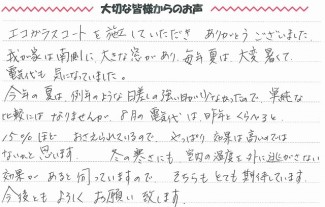 大切な皆様からのお声
エコガラスコートを施していただき ありがとうございました。
我が家は南側に、大きな窓があり、毎年夏は、大変暑くて、
電気代も 気になっていました。
今年の夏は、例年のような日差しの強い日が少なかったので、単純な
比較にはなりませんが、8月の電気代は、昨年とくらべると
15%ほど おさえられているので、やっぱり効果は高いのでは
ないかと思います。 冬の寒さにも、室内の温度を外に逃がさない
効果があると伺っていますので、そちらも とても期待しています。
今後とも よろしくお願い致します。